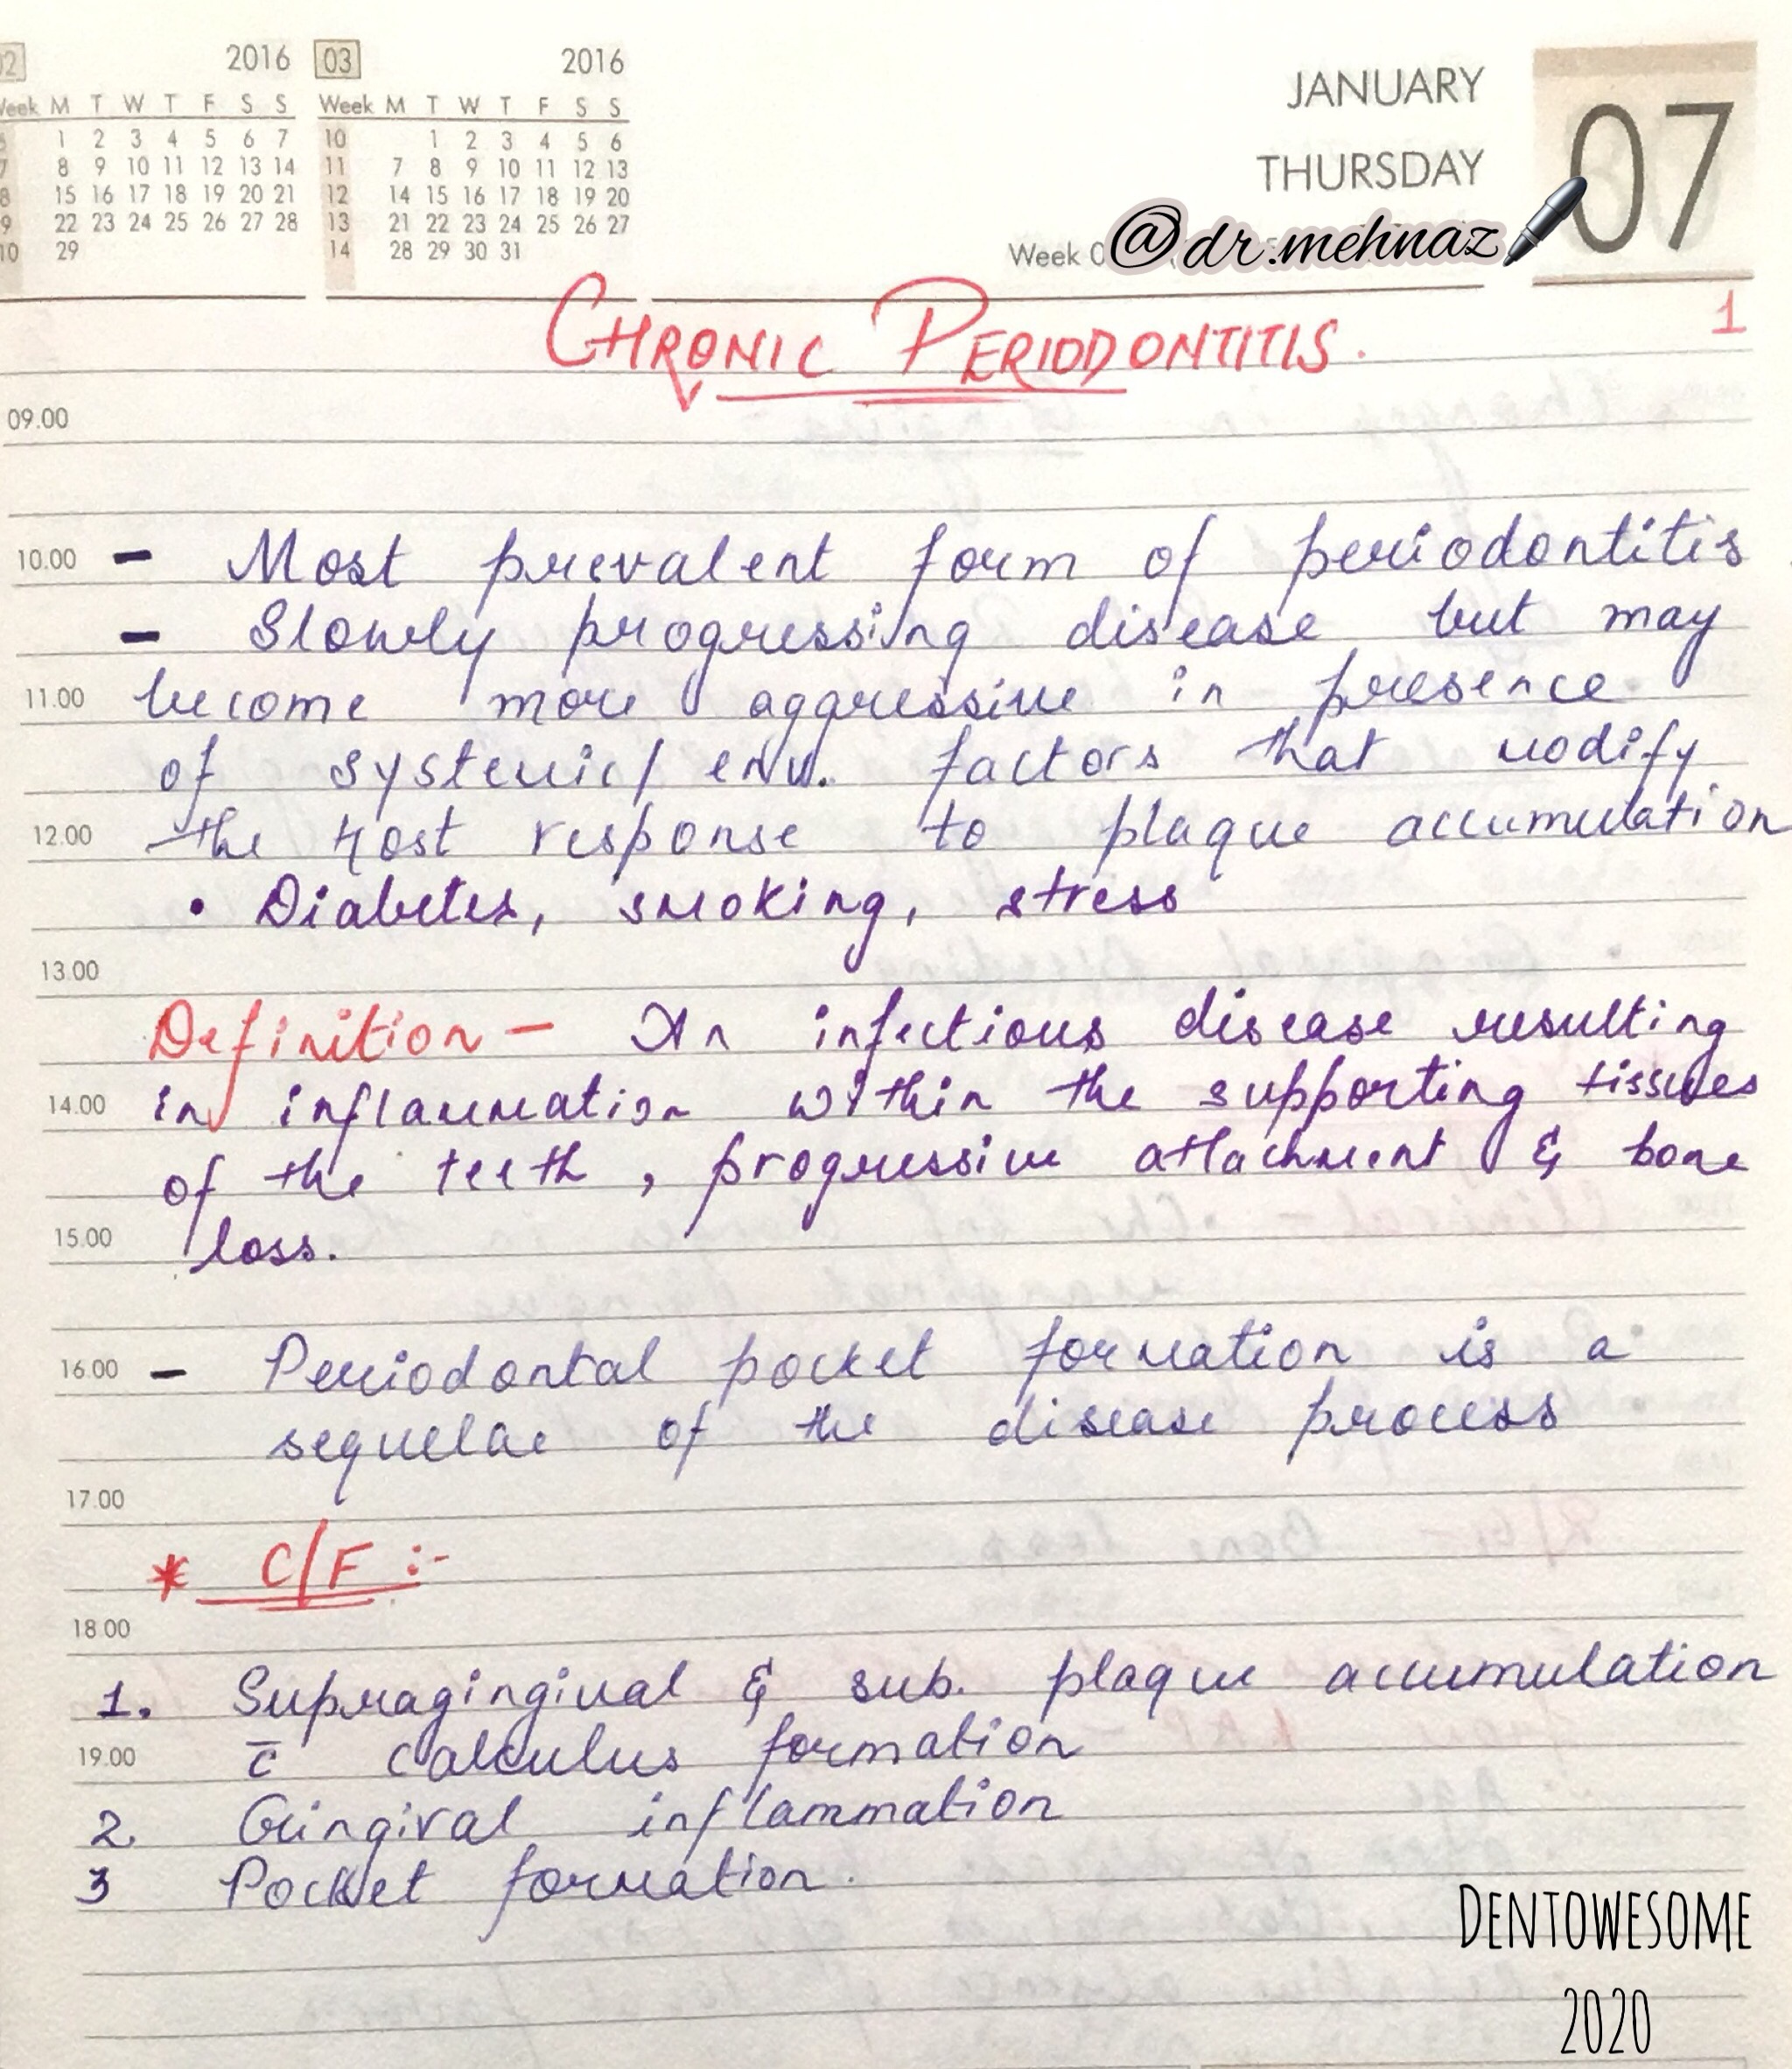 02 2016 03 2016
Week M T W T F S S Week M T W T F S S
6 1 2 3 4 5 6 7 10 1 2 3 4 5 6
7 8 9 10 11 12 13 14 11 7 8 9 10 11 12 13
8 15 16 17 18 19 20 21 12 14 15 16 17 18 19 20
9 22 23 24 25 26 27 28 13 21 22 23 24 25 26 27
10 29 14 28 29 30 31
JANUARY
THURSDAY
07
Week 0
@dr.mehnaz
1
CHRONIC PERIODONTITIS.
09.00
10.00 - Most prevalent form of periodontitis
- Slowly progressing disease but may
11.00 become more aggressive in presence
of systemic/ env. factors that modify
12.00 the host response to plaque accumulation
• Diabetes, smoking, stress
13.00
Definition - An infectious disease resulting
14.00 in inflammation within the supporting tissues
of the teeth, progressive attachment & bone
15.00 loss.
16.00 - Periodontal pocket formation is a
sequelae of the disease process
17.00
* C/F :-
18.00
1. Supragingival & sub. plaque accumulation
19.00 c̄ calculus formation
2. Gingival inflammation
3 Pocket formation.
DENTOWESOME
2020